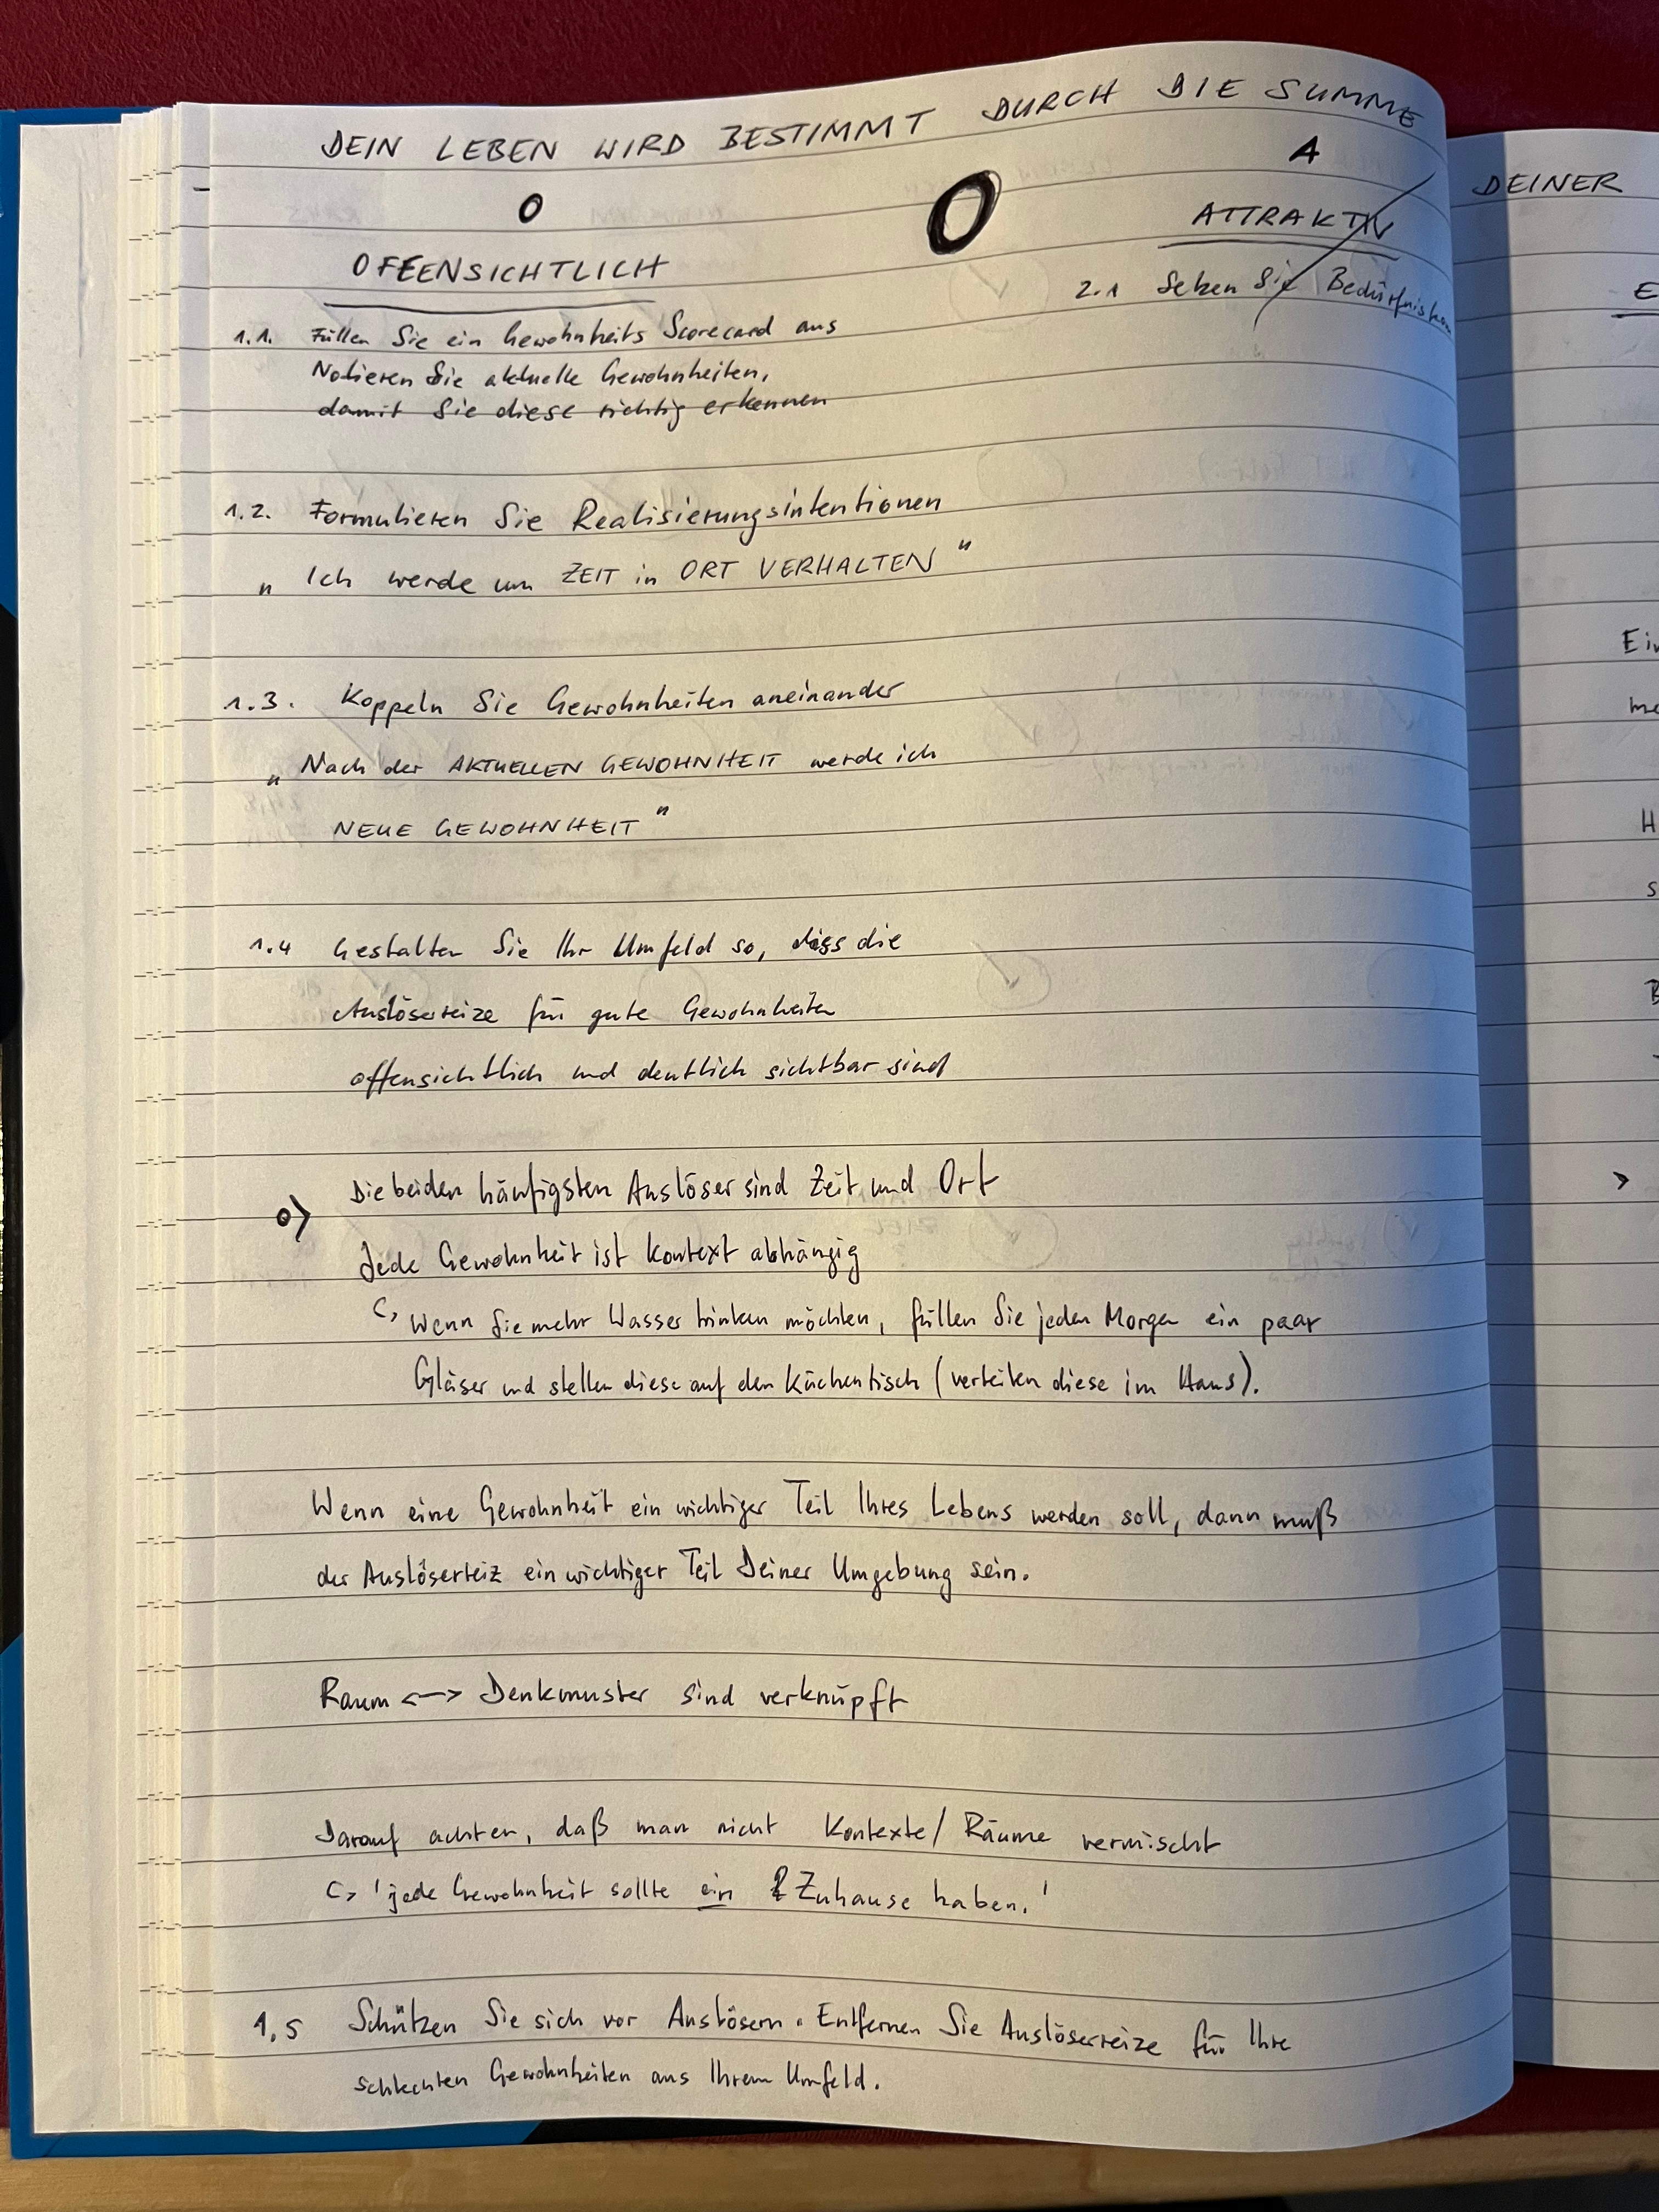 DEIN LEBEN WIRD BESTIMMT DURCH DIE SUMME
O
OFFENSICHTLICH
O
A
ATTRAKTIV
2.1 Setzen Sie
1.1. Füllen Sie ein Gewohnheits Scorecard aus
Notieren Sie aktuelle Gewohnheiten,
damit Sie diese richtig erkennen
1.2. Formulieren Sie Realisierungsintentionen
„ Ich werde um ZEIT in ORT VERHALTEN "
1.3. Koppeln Sie Gewohnheiten aneinander
„ Nach der AKTUELLEN GEWOHNHEIT werde ich
NEUE GEWOHNHEIT "
1.4 Gestalten Sie Ihr Umfeld so, dass die
Auslösereize für gute Gewohnheiten
offensichtlich und deutlich sichtbar sind
o> Die beiden häufigsten Auslöser sind Zeit und Ort
Jede Gewohnheit ist Kontext abhängig
↳ Wenn Sie mehr Wasser trinken möchten, füllen Sie jeden Morgen ein paar
Gläser und stellen diese auf den Küchentisch (verteilen diese im Haus).
Wenn eine Gewohnheit ein wichtiger Teil Ihres Lebens werden soll, dann muß
der Auslösereiz ein wichtiger Teil Deiner Umgebung sein.
Raum <--> Denkmuster sind verknüpft
Darauf achten, daß man nicht Kontexte/Räume vermischt
↳ 'jede Gewohnheit sollte ein Zuhause haben.'
1.5 Schützen Sie sich vor Auslösern. Entfernen Sie Auslösereize für Ihre
schlechten Gewohnheiten aus Ihrem Umfeld.
DEINER